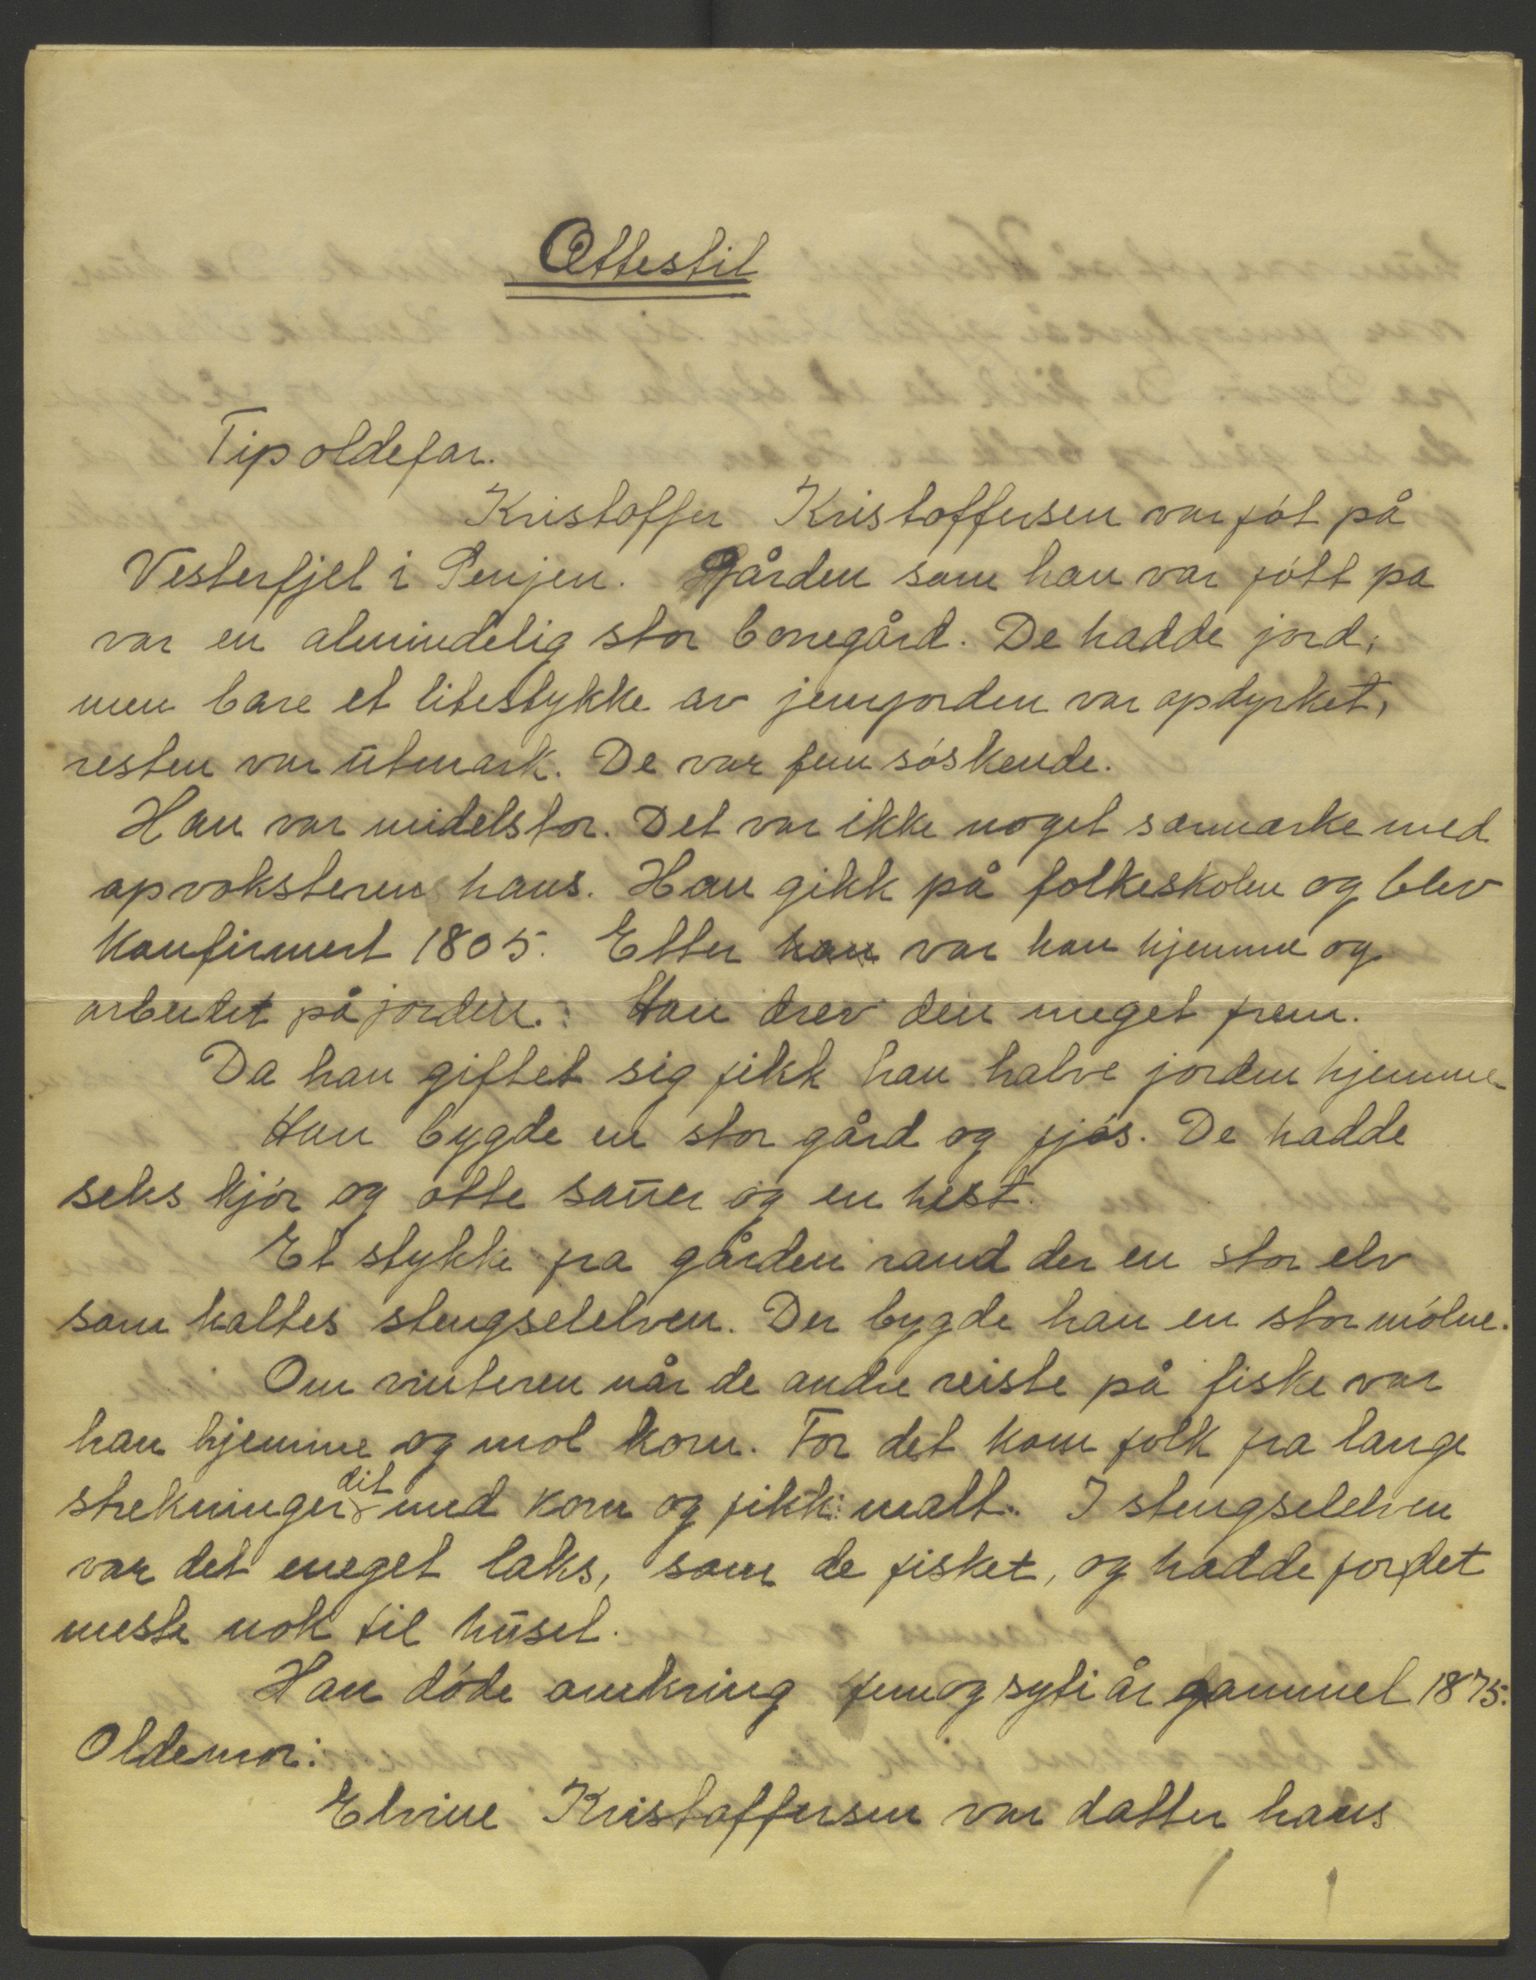 Ættestil
Tipoldefar.
Kristoffer Kristoffersen var føt på
Vesterfjel i Senjen. Gården som han var føtt pa
var en almindelig stor bonegård. De hadde jord,
men bare et litestykke av jemjorden var opdyrket,
resten var utmark. De var fem søskende.
Han var midelstor. Det var ikke noget særmærke med
opvoksteren hans. Han gikk på folkeskolen og blev
konfirmert 1805. Etter han var han hjemme og
arbeidet på jorden. Han drev den meget frem.
Da han giftet sig fikk han halve jorden hjemme
Han bygde en stor gård og fjøs. De hadde
seks kjør og otte sauer og en hest.
Et stykke fra gården rand der en stor elv
som kaltes stengselelven. Der bygde han en stor mølne.
Om vinteren når de andre reiste på fiske var
han hjemme og mol korn. For det kom folk fra lange
strekninger dit med korn og fikk malt. I stengselelven
var det meget laks, som de fisket, og hadde for det
meste nok til huset.
Han døde omkring femogsyti år gammel 1875.
Oldemor:
Elvine Kristoffersen var datter hans